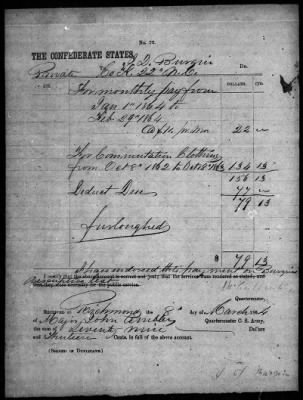 No. 22
THE CONFEDERATE STATES,
J. D. Burgin
Dr.
Private Co K. 22d N.C.
DOLLARS. CTS.
For monthly pay from
Jan 1st 1864 to
Feb 29th 1864
@ $11. pr. Mo 22
For Commutation Clothing
from Oct 8th 1862 to Oct 8th 1863 134 13
156 13
Deduct Due 77
79 13
furloughed
$ 79 13
I have endorsed this payment on Burgin's
I certify that the above account is correct and just; that the services were rendered as stated, and
necessary for the public service.
Quartermaster.
RECEIVED at Richmond the 8th of March 1864
of Major John Ambler Quartermaster C. S. Army,
the sum of Seventy nine Dollars
and Thirteen Cents, in full of the above account.
(SIGNED IN DUPLICATE.)
J D Burgin